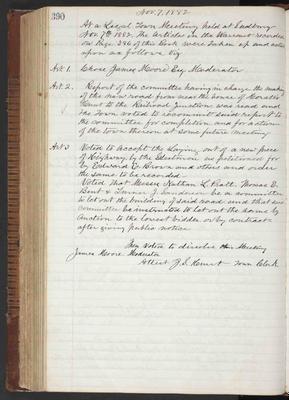 390
Nov. 7, 1882
At a Legal Town Meeting held at Sudbury
Nov. 7th 1882. The Articles in the Warrant recorded
on Page 386 of this Book were taken up and acted
upon as follows Viz
Art 1. Chose James Moore Esq Moderator
Art 2. Report of the committee having in charge the making
of the new road from near the house of Horatio
Hunt to the Railroad Junction was read and
the Town voted to recommit said report to
the committee for completion and for action
of the town thereon at some future meeting
Art 3 Voted to accept the laying out of a new piece
of Highway by the Selectmen as petitioned for
by Edward E. Brown and others and order
the same to be recorded
Voted That Messrs Nathan L. Pratt. Thomas E.
Bent & be a committee
to let out the building of said road and that said
committee be instructed to let out the same by
Auction to the lowest bidder or by contract
after giving public notice
Then Voted to dissolve the Meeting
James Moore Moderator
Attest J. S. Hunt Town Clerk